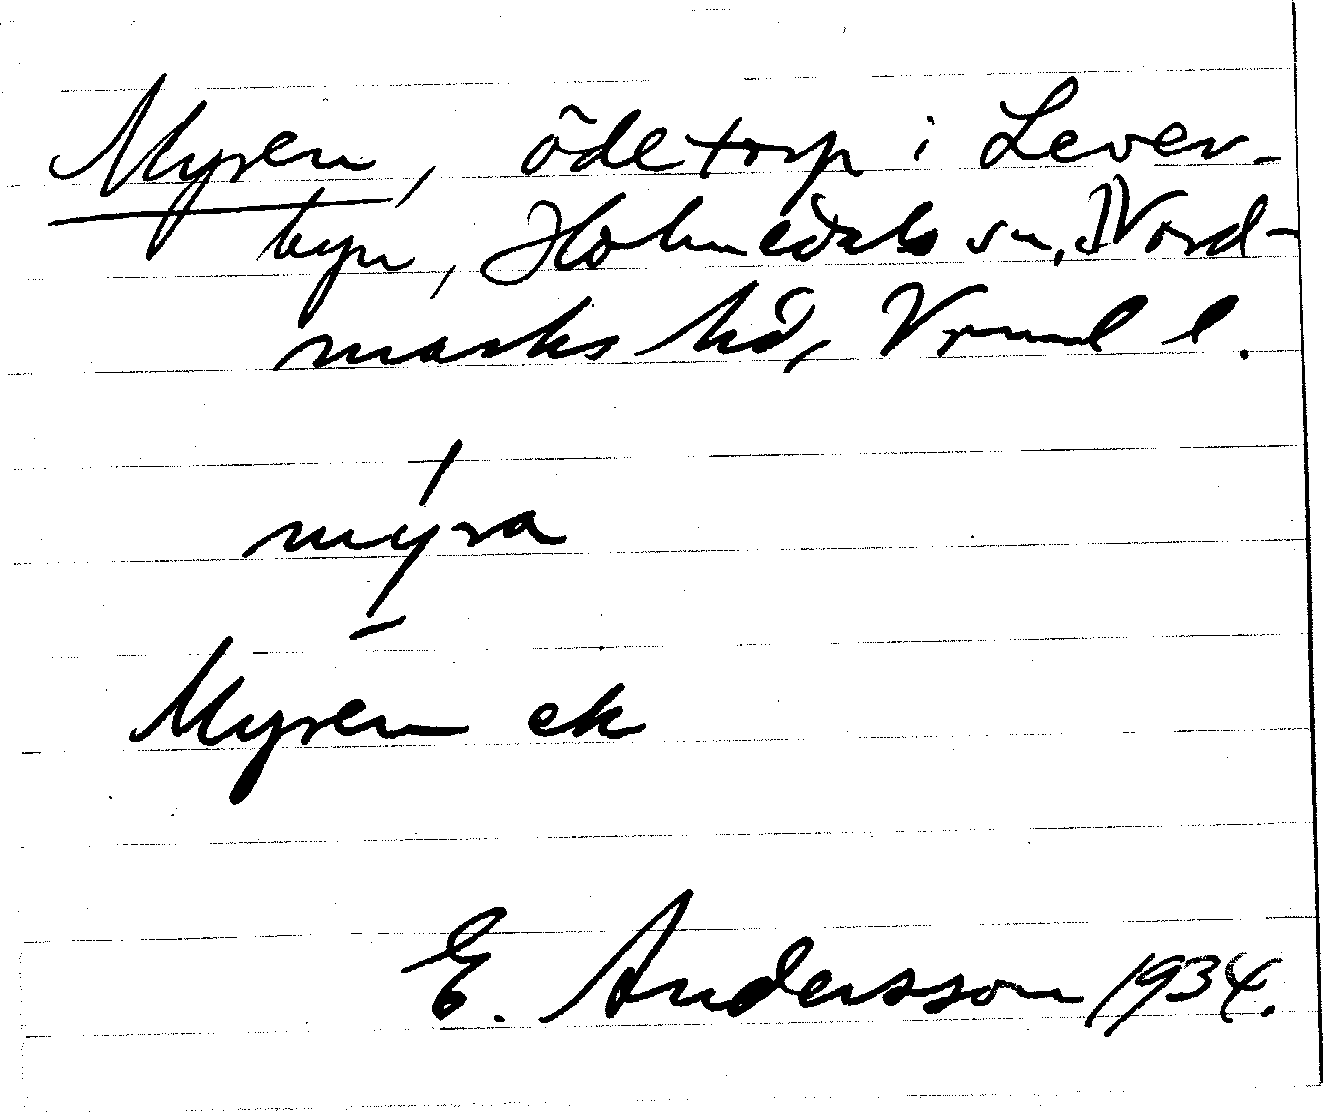 Myren, ödetorp i Lever-
byn, Holmedals sn, Nord-
marks hd, Vrml l.
myra
Myren ek
E. Andersson 1934.